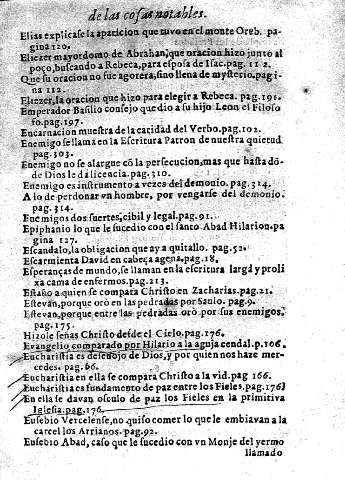 de las cosas notables.
Elias explicase la aparicion que tuvo en el monte Oreb. pa-
gina 120.
Eliezer mayordomo de Abrahan, que oracion hizo junto al
poço, buscando a Rebeca, para esposa de Isac. pag. 112.
Que su oracion no fue agorera, sino llena de mysterio, pagi
na 112.
Eliezer, la oracion que hizo para elegir a Rebeca. pag. 191.
Emperador Basilio consejo que dio a su hijo Leon el Filoso
fo. pag. 197.
Encarnacion muestra de la caridad del Verbo. pag. 102.
Enemigo se llama en la Escritura Patron de nuestra quietud
pag. 303.
Enemigo no se alargue cõ la persecucion, mas que hasta dõ-
de Dios le dà licencia. pag. 310.
Enemigo es instrumento a vezes del demonio. pag. 314.
A lo de perdonar vn hombre, por vengarse del demonio.
pag. 314.
Enemigos dos suertes, cibil y legal. pag. 91.
Epiphanio lo que le sucedio con el santo Abad Hilarion. pa
gina 127.
Escandalo, la obligacion que ay a quitallo. pag. 52.
Escarmienta David en cabeça agena. pag. 18.
Esperanças de mundo, se llaman en la escritura larga y proli
xa cama de enfermos. pag. 213.
Estaño a quien se compara Christo en Zacharias. pag. 21.
Estevan, porque orò en las pedradas por Saulo. pag. 9.
Estevan, porque entre las pedradas orò por sus enemigos,
pag. 175.
Hizole señas Christo desde el Cielo. pag. 176.
Evangelio comparado por Hilario a la aguja cendal. p. 106.
Eucharistia es desenojo de Dios, y por quien nos haze mer-
cedes. pag. 66.
Eucharistia en ella se compara Christo a la vid. pag 166.
Eucharistia es fundamento de paz entre los Fieles. pag. 176
En ella se davan osculo de paz los Fieles en la primitiva
Iglesia. pag. 176.
Eusebio Vercelense, no quiso comer lo que le embiavan a la
carcel los Arrianos. pag. 92.
Eusebio Abad, caso que le sucedio con vn Monje del yermo
llamado